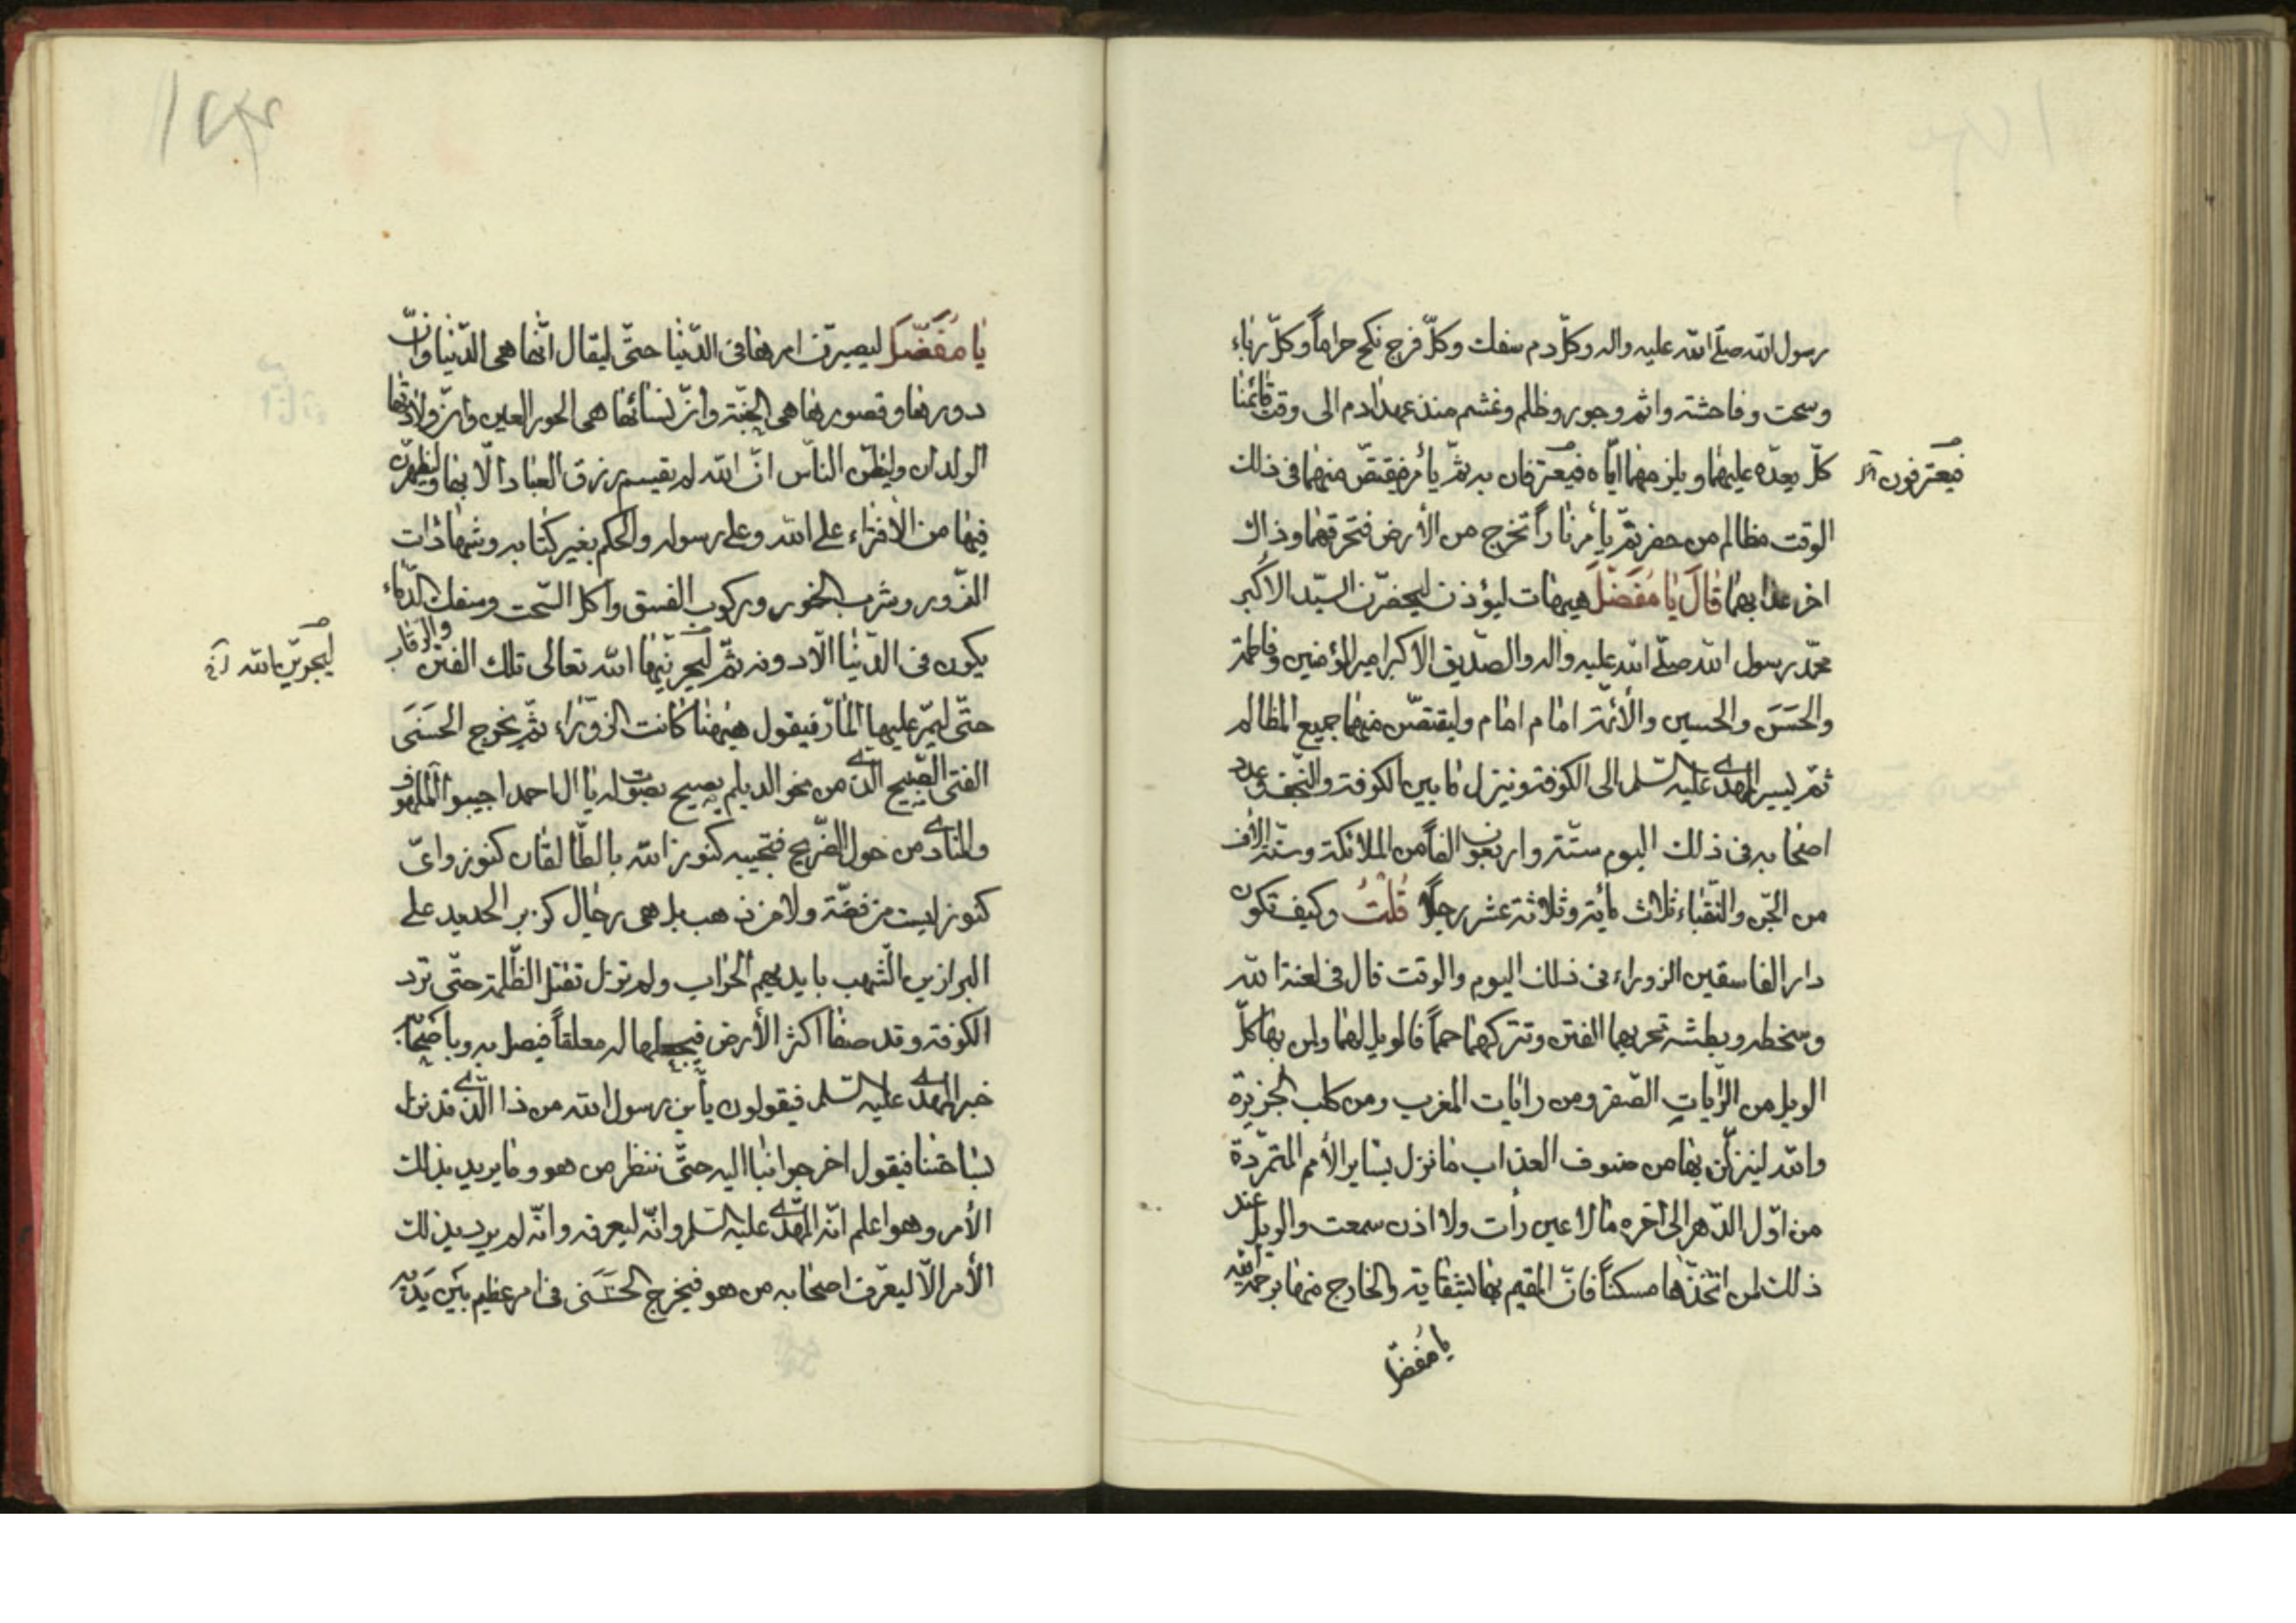 رسول الله صلّى الله عليه واله وكلّ دم سفك وكلّ فرج نكح حراماً وكلّ رباء
وسحت وفاحشة واثم وجور وظلم وغشم منذ عهد ادم الى وقت قائمنا
كلّ يعدّه عليهما ويلزمهما ايّاه فيعترفان به ثمّ يأمر فيقتصّ منهما فى ذلك
فيعترفون
الوقت مظالم من حضر ثمّ يأمر ناراً تخرج من الأرض فتحرقهما وذاك
اخر عذابهما قَالَ يَا مُفَضَّلُ هيهات ليؤذن ليحضرن السيّد الاكبر
محمّد رسول الله صلّى الله عليه واله والصدّيق الاكبر امير المؤمنين وفاطمة
والحَسَنَ والحسين والأئمّة امام امام وليقتصّن منهما جميع المظالم
ثمّ يسير المهدى عليه السّلم الى الكوفة وينزل ما بين الكوفة والنّجف وعدد
اصحابه فى ذلك اليوم ستّة واربعون الفاً من الملائكة وستّة الاف
من الجّن والنّقباء ثلاث مأية وثلاثة عشر رجلاً قُلْتُ وكيف تكون
دار الفاسقين الزوراء فى ذلك اليوم والوقت قال فى لعنة الله
وسخطه وبطشه تحربها الفتن وتتركها حمماً فالويل لها ولمن بها كلّ
الويل من الرّاياتِ الصّفر ومن رايات المغرب ومن كلب الجزيرة
والله لينزلنّ بها من صنوف العذاب ما نزل بساير الأمم المتمرّدة
من اوّل الدّهر الى اخره ما لا عين رأت ولا اذن سمعت والويل عند
ذلك لمن اتّخذها مسكناً فانّ المقيم بها بشقايه والخارج منها برحمة الله
يا مُفضّل
يَا مُفَضَّلُ ليصيرنّ امرها فى الدّنيا حتّى ليقال انّها هى الدّنيا وانّ
دورها وقصورها هى الجنّة وانّ نسائها هى الحور العين وانّ ولادتها
الولدان وليظنّ النّاس انّ الله لم يقسم رزق العباد الّا بها وليظهرنّ
فيها من الأفتراء على الله وعلى رسوله والحكم بغير كتابه وشهادات
الزّور وشرب الخمور وركوب الفسق وأكل السّحت وسفك الدّماء
يكون فى الدّنيا الّا دونه ثمّ ليخربنّها الله تعالى تلك الفتن والرّايات
حتّى ليمّر عليها المّار فيقول هيهنا كانت الزوّراء ثمّ يخرج الحَسَنَى
الفتى الصّبيح الّذى من نحو الديلم يصيح بصوت له يا ال احمد اجيبوا الملهوف
والمنادى من حول الضّريح فتجيبه كنوز الله بالطّالقان كنوز واىّ
كنوز ليست من فضّة ولا من ذهب بل هى رجال كزبر الحديد على
البراذين الشّهب بايديهم الحراب ولم تزل تقتل الظّلمة حتّى ترد
الكوفة وقد صفا اكثر الأرض فيجعلها له معقلاً فيصل به وباصحابه
خبر المهدى عليه السّلم فيقولون يأبن رسول الله من ذا الّذى قد نزل
بساحتنا فيقول اخرجوا بنا اليه حتّى ننظر من هو وما يريد بذلك
الأمر وهو اعلم انّه المهدّى عليه السّلم وانّه ليعرفه وانّه لم يريد بذلك
الأمر الاّ ليعرّف اصحابه من هو فيخرج الحَسَنى فى امر عظيم بَيَن يَديه